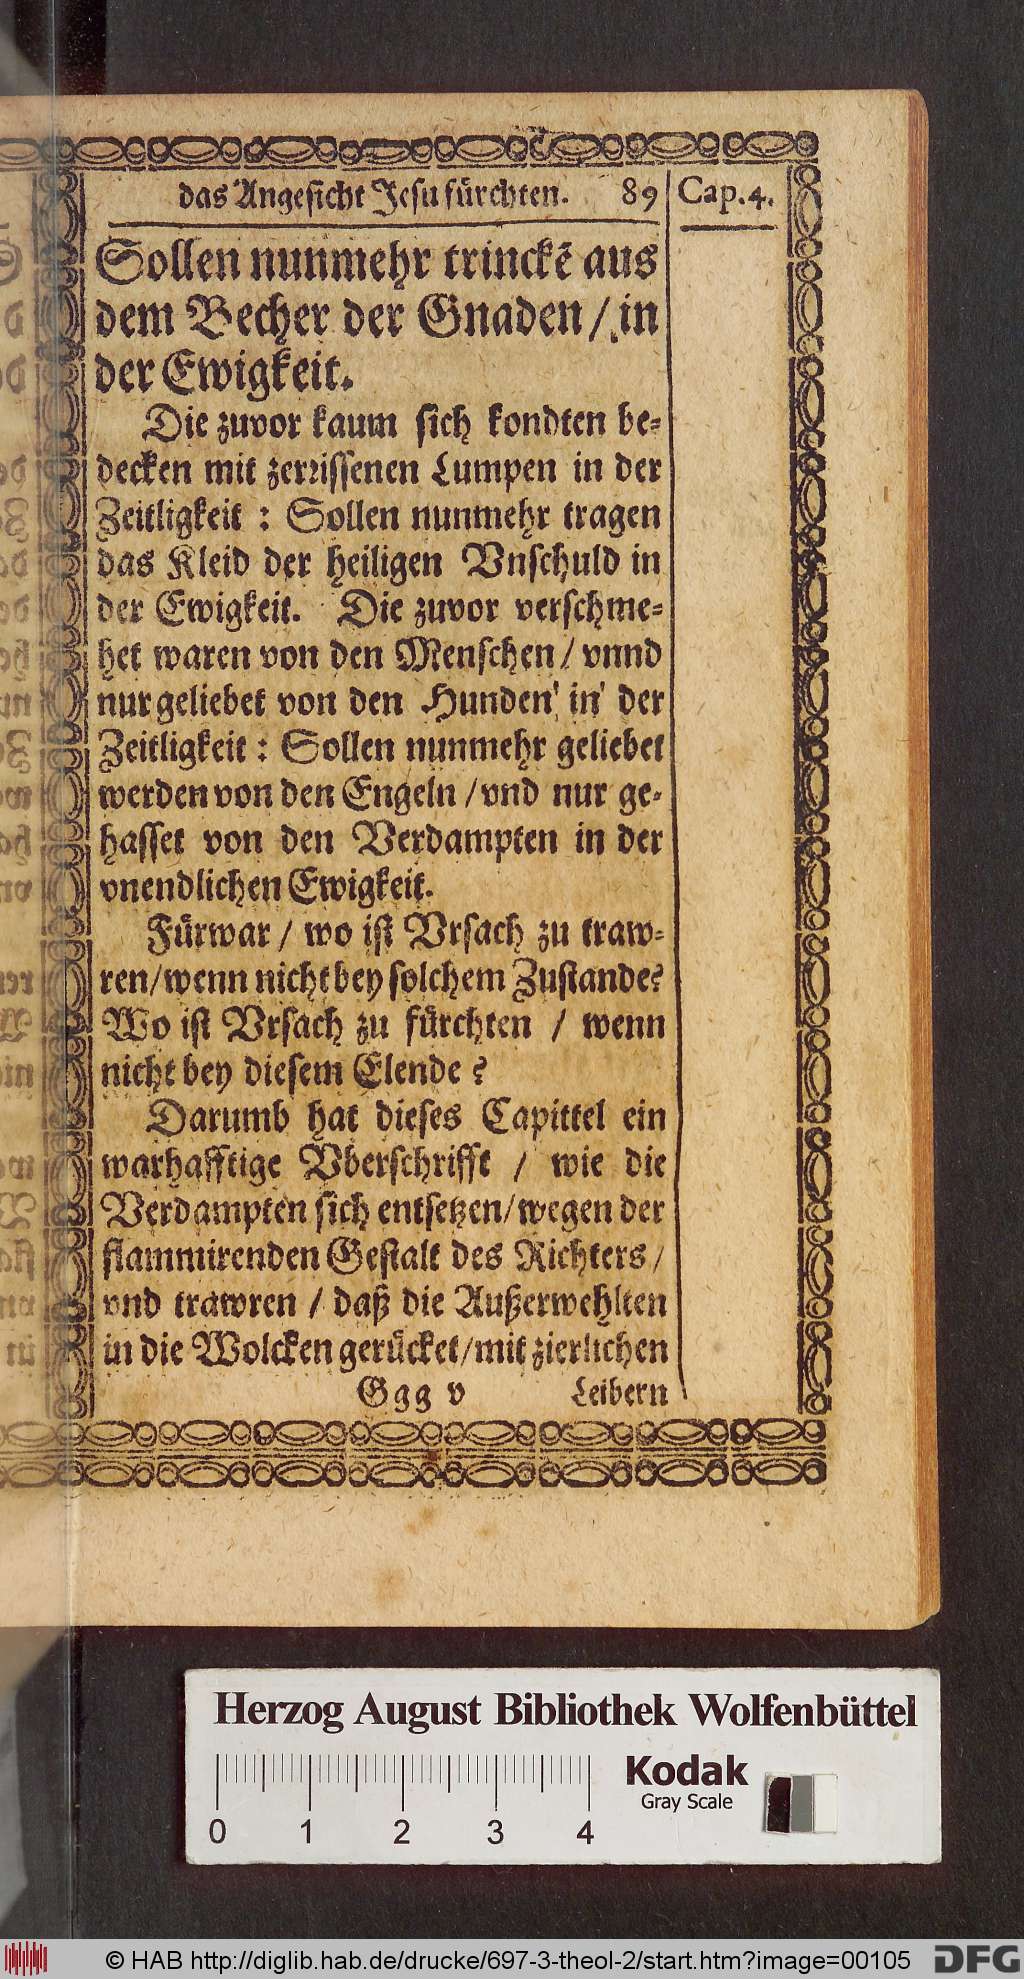 das Angesicht Jesu fürchten. 89 Cap. 4.
Sollen nunmehr trinckē aus
dem Becher der Gnaden / in
der Ewigkeit.
Die zuvor kaum sich kondten be-
decken mit zerrissenen Lumpen in der
Zeitligkeit : Sollen nunmehr tragen
das Kleid der heiligen Vnschuld in
der Ewigkeit. Die zuvor verschme-
het waren von den Menschen / vnnd
nur geliebet von den Hunden in der
Zeitligkeit : Sollen nunmehr geliebet
werden von den Engeln / vnd nur ge-
hasset von den Verdampten in der
vnendlichen Ewigkeit.
Fürwar / wo ist Vrsach zu traw-
ren / wenn nicht bey solchem Zustande?
Wo ist Vrsach zu fürchten / wenn
nicht bey diesem Elende ?
Darumb hat dieses Capittel ein
warhafftige Vberschrifft / wie die
Verdampten sich entsetzen / wegen der
flammirenden Gestalt des Richters /
vnd trawren / daß die Außerwehlten
in die Wolcken gerücket / mit zierlichen
Ggg v Leibern
Herzog August Bibliothek Wolfenbüttel
Kodak
Gray Scale
0 1 2 3 4
© HAB http://diglib.hab.de/drucke/697-3-theol-2/start.htm?image=00105 DFG